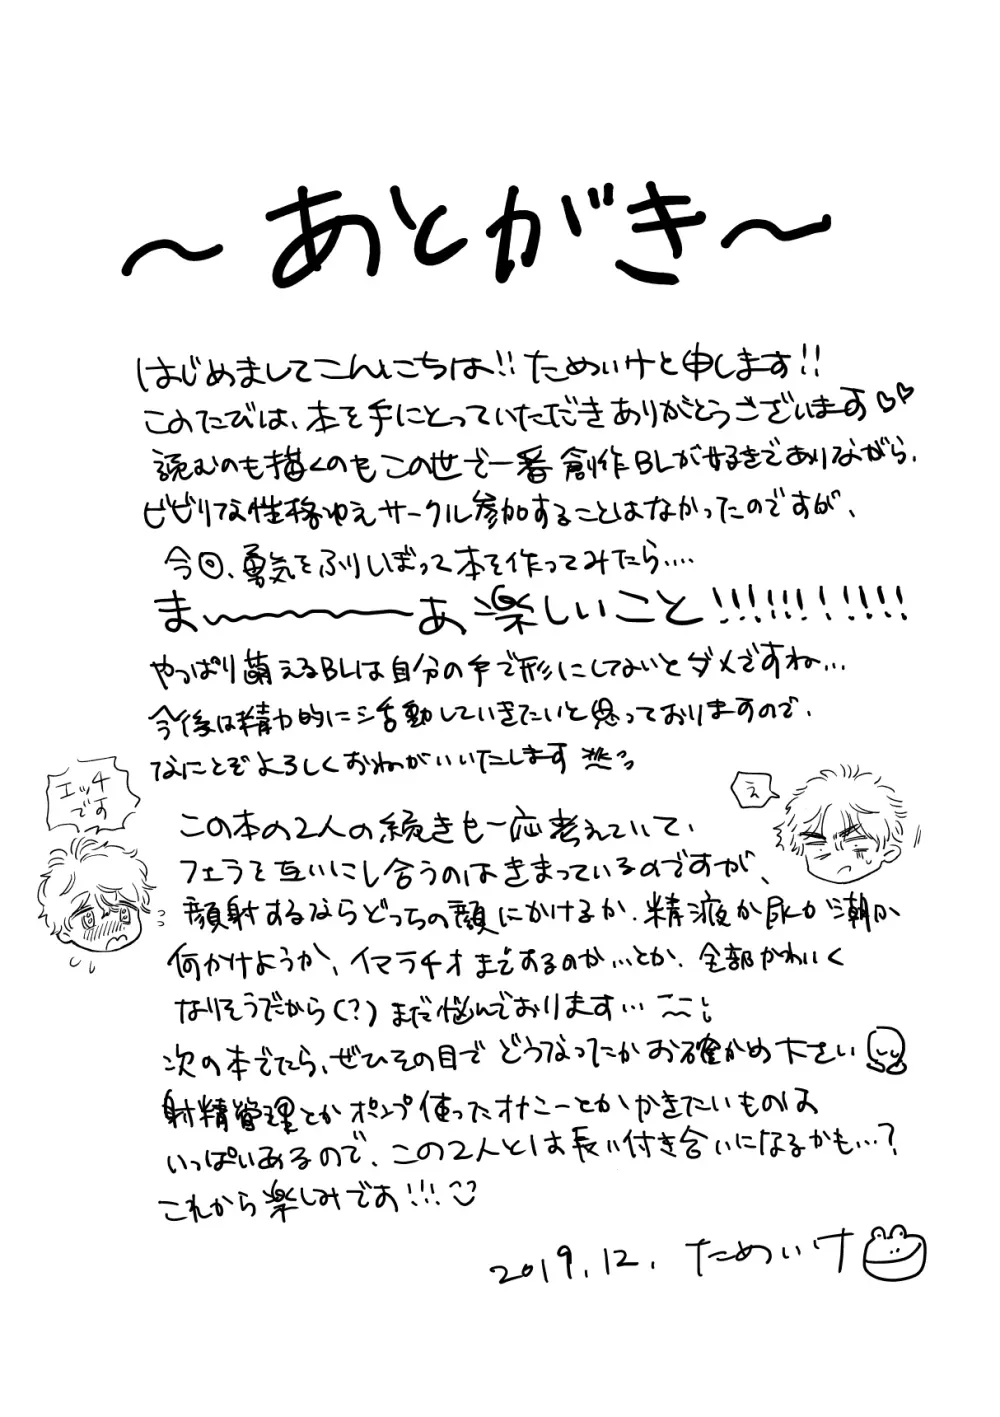 ～あとがき～
はじめましてこんにちは!! ためいけと申します!!
このたびは、本を手にとっていただきありがとうございます♡♡
読むのも描くのもこの世で一番創作BLが好きでありながら、
ビビリな性格ゆえサークル参加することはなかったのですが、
今回、勇気をふりしぼって本を作ってみたら....
ま～～～～～あ楽しいこと!!!!!!!!!!!
やっぱり萌えるBLは自分の手で形にしてないとダメですね...
今後は精力的に活動していきたいと思っておりますので、
なにとぞよろしくおねがいいたします
エッチ
です
え
この本の2人の続きも一応考えていて、
フェラを互いにし合うのはきまっているのですが、
顔射するならどっちの顔にかけるか、精液か尿か潮か
何かけようか、イマラチオまでするのか...とか、全部かわいく
なりそうだから(?)まだ悩んでおります...
次の本でたら、ぜひその目でどうなったかお確かめ下さい
射精管理とかポンプ使ったオナニーとかかきたいものは
いっぱいあるので、この2人とは長い付き合いになるかも...?
これから楽しみです!!!
2019.12. ためいけ